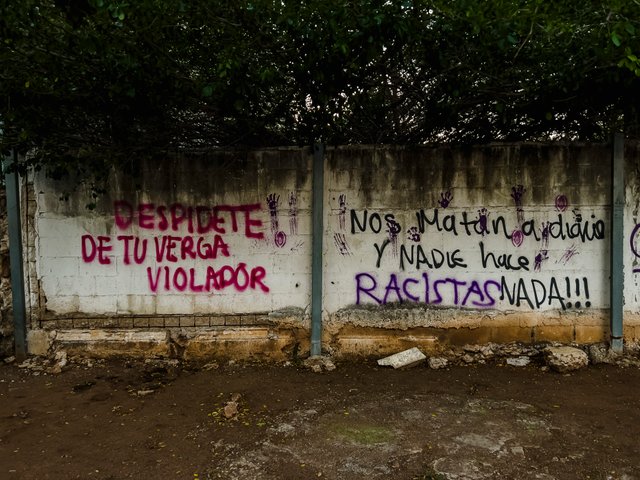 DESPIDETE
DE TU VERGA
VIOLADOR
NOS MAtAN a diario
Y NADIE hace
RACIStAS NADA!!!